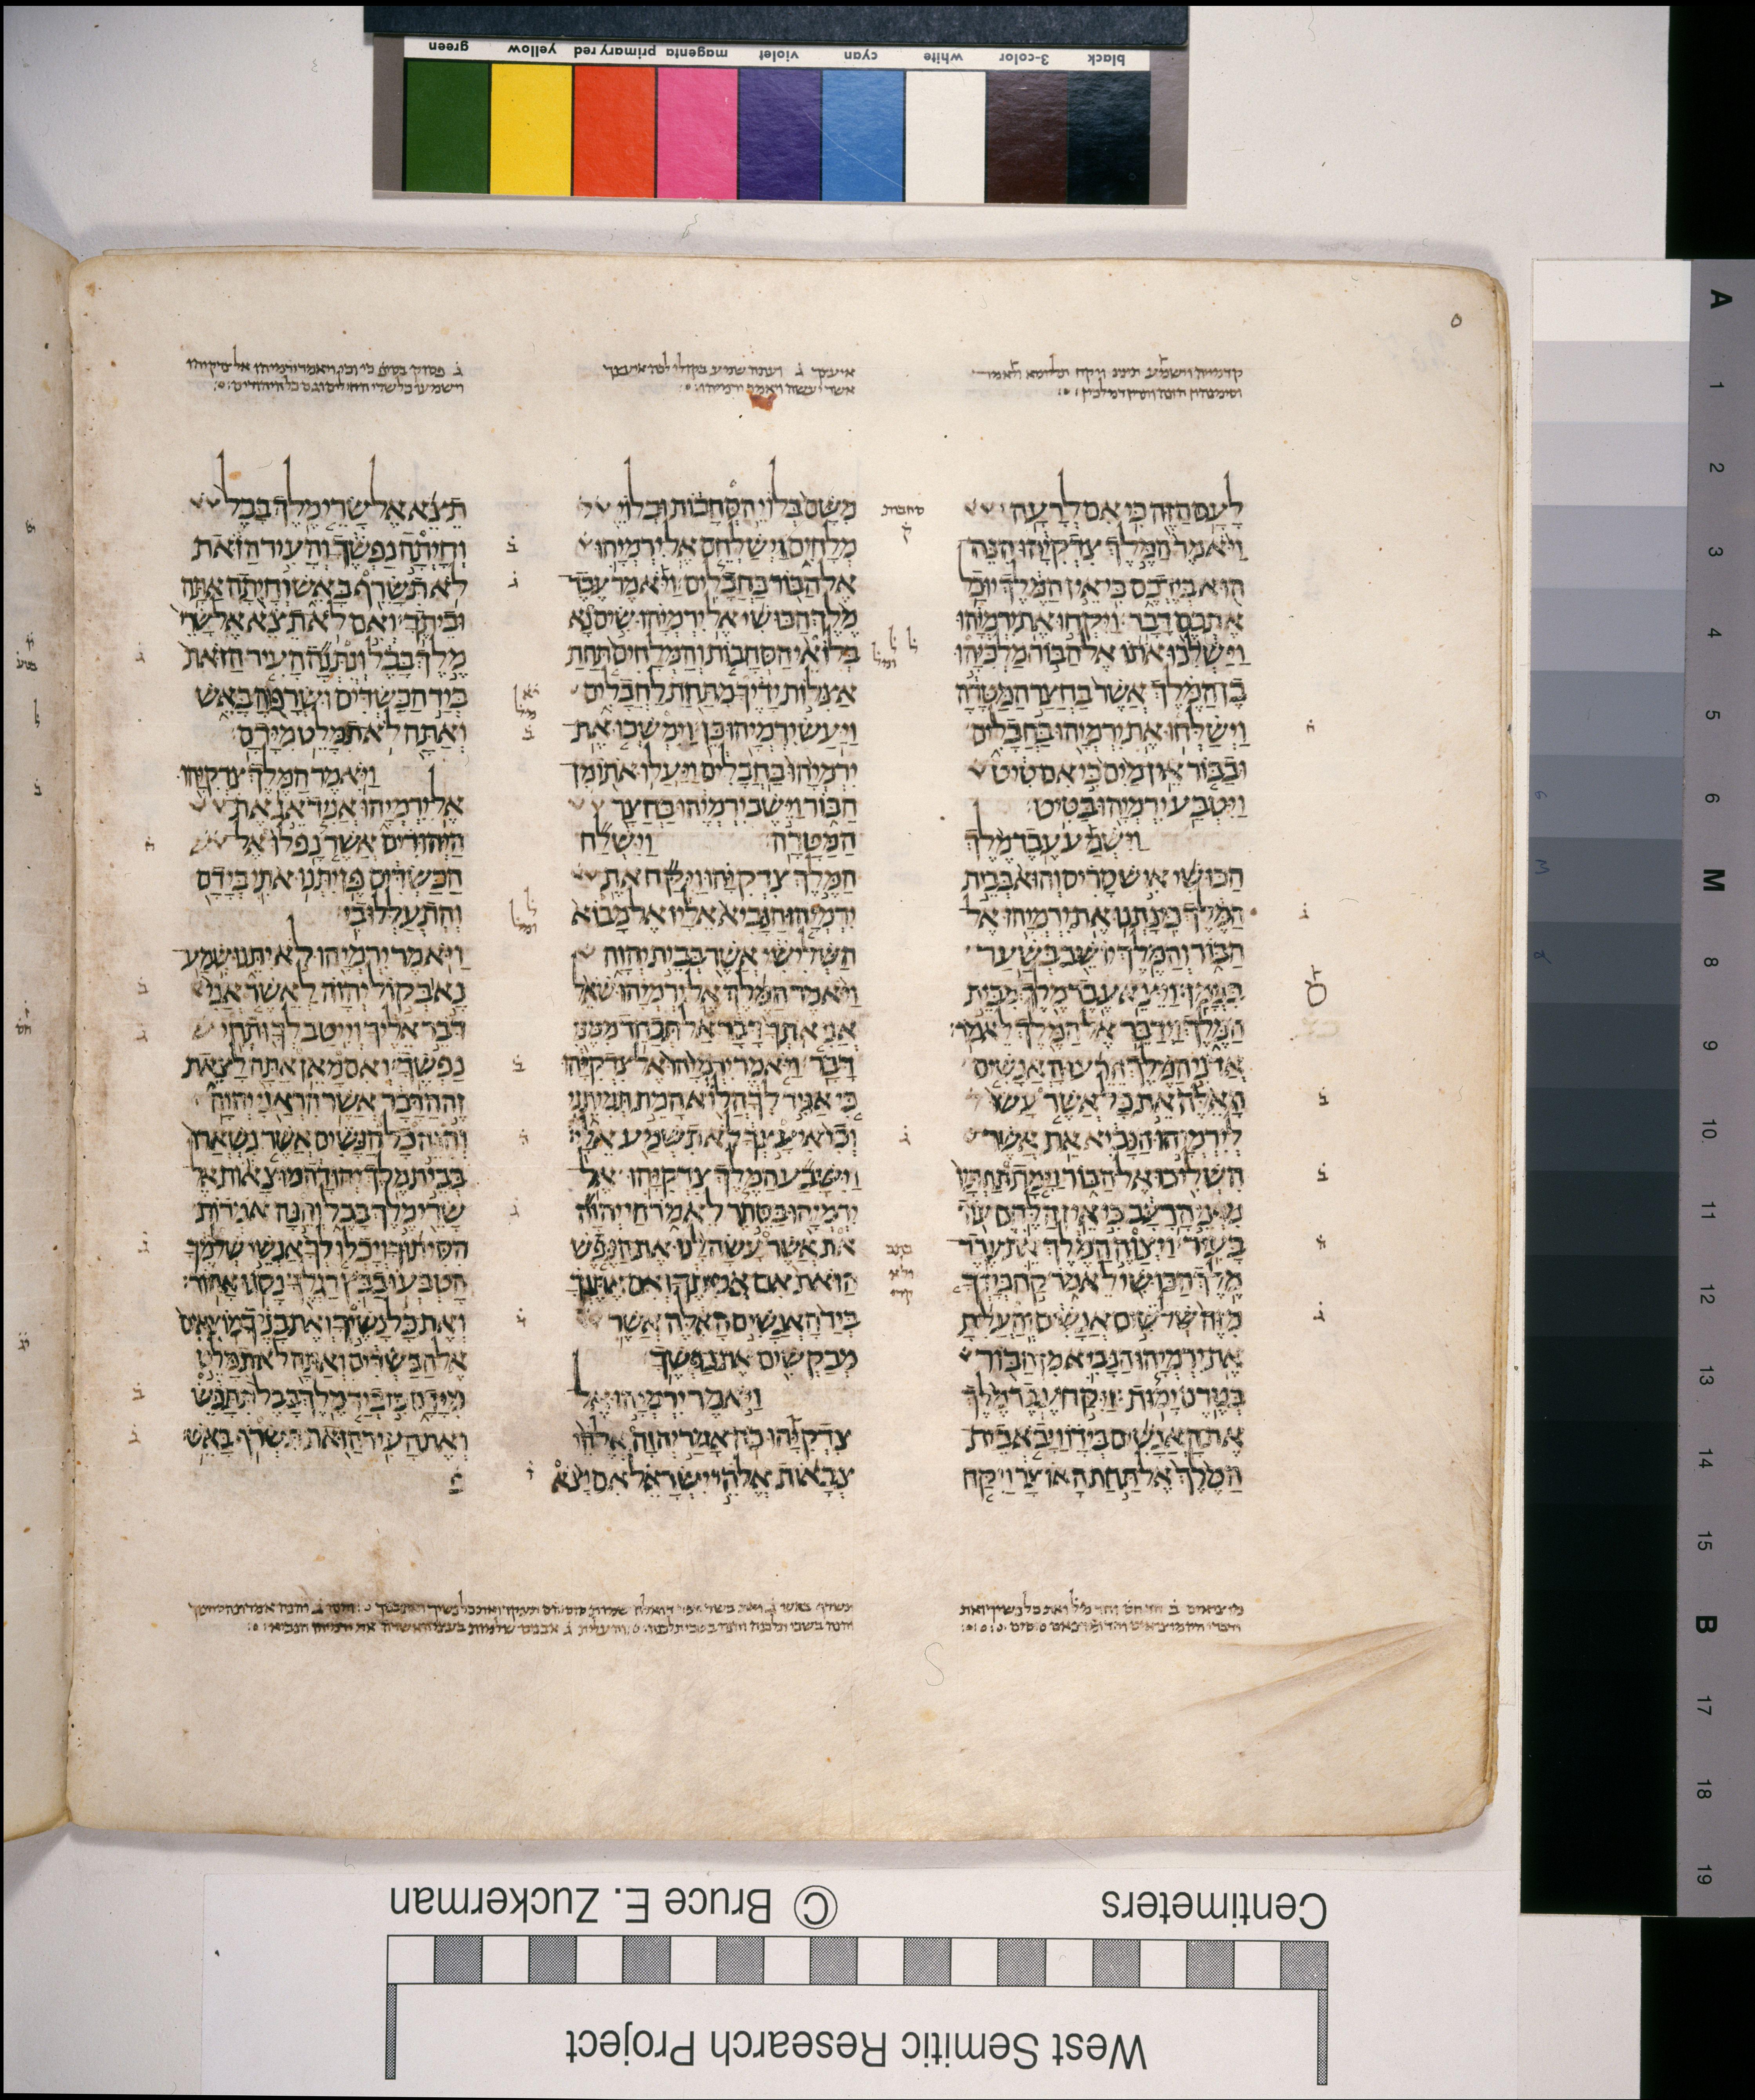 קדמיה וישמע תינינ ויקח תליתא ויאמר
לעם הזה כי אם לרעה
ויאמר המלך צדקיהו הנה
הוא בידכם כי אין המלך יוכל
אתכם דבר׃ ויקחו את ירמיהו
וישלכו אתו אל הבור מלכיהו
בן המלך אשר בחצר המטרה
וישלחו את ירמיהו בחבלים
ובבור אין מים כי אם טיט
ויטבע ירמיהו בטיט׃
וישמע עבד מלך
הכושי איש סריס והוא בבית
המלך כי נתנו את ירמיהו אל
הבור והמלך יושב בשער
בנימן׃ ויצא עבד מלך מבית
המלך וידבר אל המלך לאמר׃
אדני המלך הרעו האנשים
האלה את כל אשר עשו
לירמיהו הנביא את אשר
השליכו אל הבור וימת תחתיו
מפני הרעב כי אין הלחם עוד
בעיר׃ ויצוה המלך את עבד
מלך הכושי לאמר קח בידך
מזה שלשים אנשים והעלית
את ירמיהו הנביא מן הבור
בטרם ימות׃ ויקח עבד מלך
את האנשים בידו ויבא בית
המלך אל תחת האוצר ויקח
משם בלוי הסחבות ובלוי
מלחים וישלחם אל ירמיהו
אל הבור בחבלים׃ ויאמר עבד
מלך הכושי אל ירמיהו שים נא
בלואי הסחבות והמלחים תחת
אצלות ידיך מתחת לחבלים
ויעש ירמיהו כן׃ וימשכו את
ירמיהו בחבלים ויעלו אתו מן
הבור וישב ירמיהו בחצר
המטרה׃ וישלח
המלך צדקיהו ויקח את
ירמיהו הנביא אליו אל מבוא
השלישי אשר בבית יהוה
ויאמר המלך אל ירמיהו שאל
אני אתך דבר אל תכחד ממני
דבר׃ ויאמר ירמיהו אל צדקיהו
כי אגיד לך הלוא המת תמיתני
וכי איעצך לא תשמע אלי׃
וישבע המלך צדקיהו אל
ירמיהו בסתר לאמר חי יהוה
את אשר עשה לנו את הנפש
הזאת אם אמיתך ואם אתנך
ביד האנשים האלה אשר
מבקשים את נפשך׃
ויאמר ירמיהו אל
צדקיהו כה אמר יהוה אלהי
צבאות אלהי ישראל אם יצא
תצא אל שרי מלך בבל
וחיתה נפשך והעיר הזאת
לא תשרף באש וחיתה אתה
וביתך׃ ואם לא תצא אל שרי
מלך בבל ונתנה העיר הזאת
ביד הכשדים ושרפוה באש
ואתה לא תמלט מידם׃
ויאמר המלך צדקיהו
אל ירמיהו אני דאג את
היהודים אשר נפלו אל
הכשדים פן יתנו אתי בידם
והתעללו בי׃
ויאמר ירמיהו לא יתנו שמע
נא בקול יהוה לאשר אני
דבר אליך וייטב לך ותחי
נפשך׃ ואם מאן אתה לצאת
זה הדבר אשר הראני יהוה׃
והנה כל הנשים אשר נשארו
בבית מלך יהודה מוצאות אל
שרי מלך בבל והנה אמרות
הסיתוך ויכלו לך אנשי שלמך
הטבעו בבץ רגלך נסגו אחור׃
ואת כל נשיך ואת בניך מוצאים
אל הכשדים ואתה לא תמלט
מידם כי ביד מלך בבל תתפש
ואת העיר הזאת תשרף באש׃
black 3-color white cyan violet magenta primary red yellow green
A
1
2
3
4
5
6
M
8
9
10
11
12
13
14
15
B
17
18
19
Centimeters
© Bruce E. Zuckerman
West Semitic Research Project